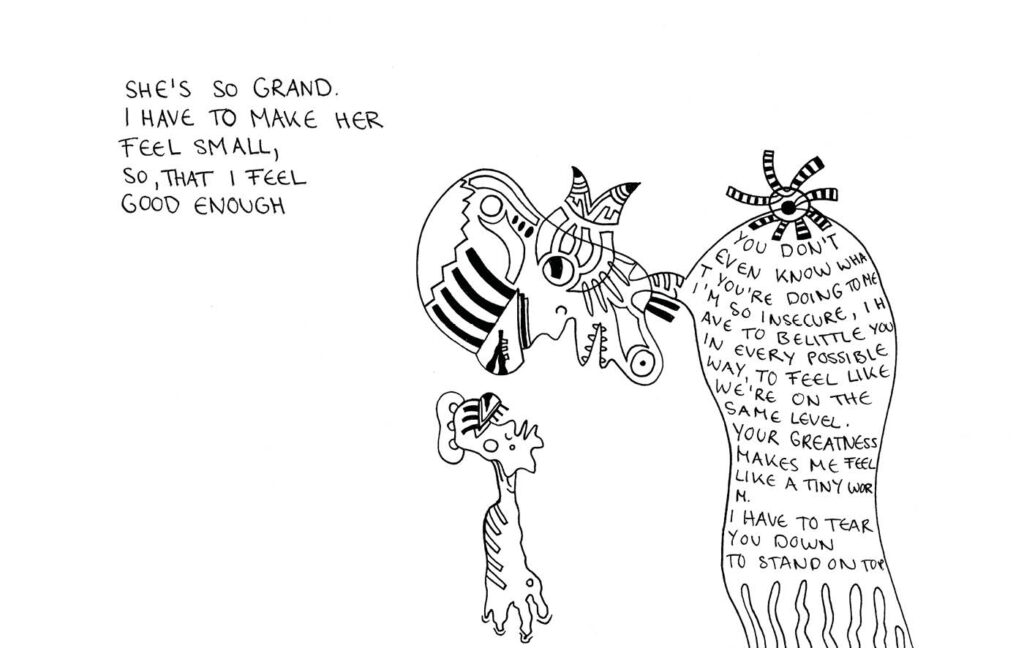 SHE'S SO GRAND.
I HAVE TO MAKE HER
FEEL SMALL,
SO, THAT I FEEL
GOOD ENOUGH
YOU DON'T
EVEN KNOW WHA
T YOU'RE DOING TO ME
I'M SO INSECURE, I H
AVE TO BELITTLE YOU
IN EVERY POSSIBLE
WAY, TO FEEL LIKE
WE'RE ON THE
SAME LEVEL.
YOUR GREATNESS
MAKES ME FEEL
LIKE A TINY WOR
M.
I HAVE TO TEAR
YOU DOWN
TO STAND ON TOP